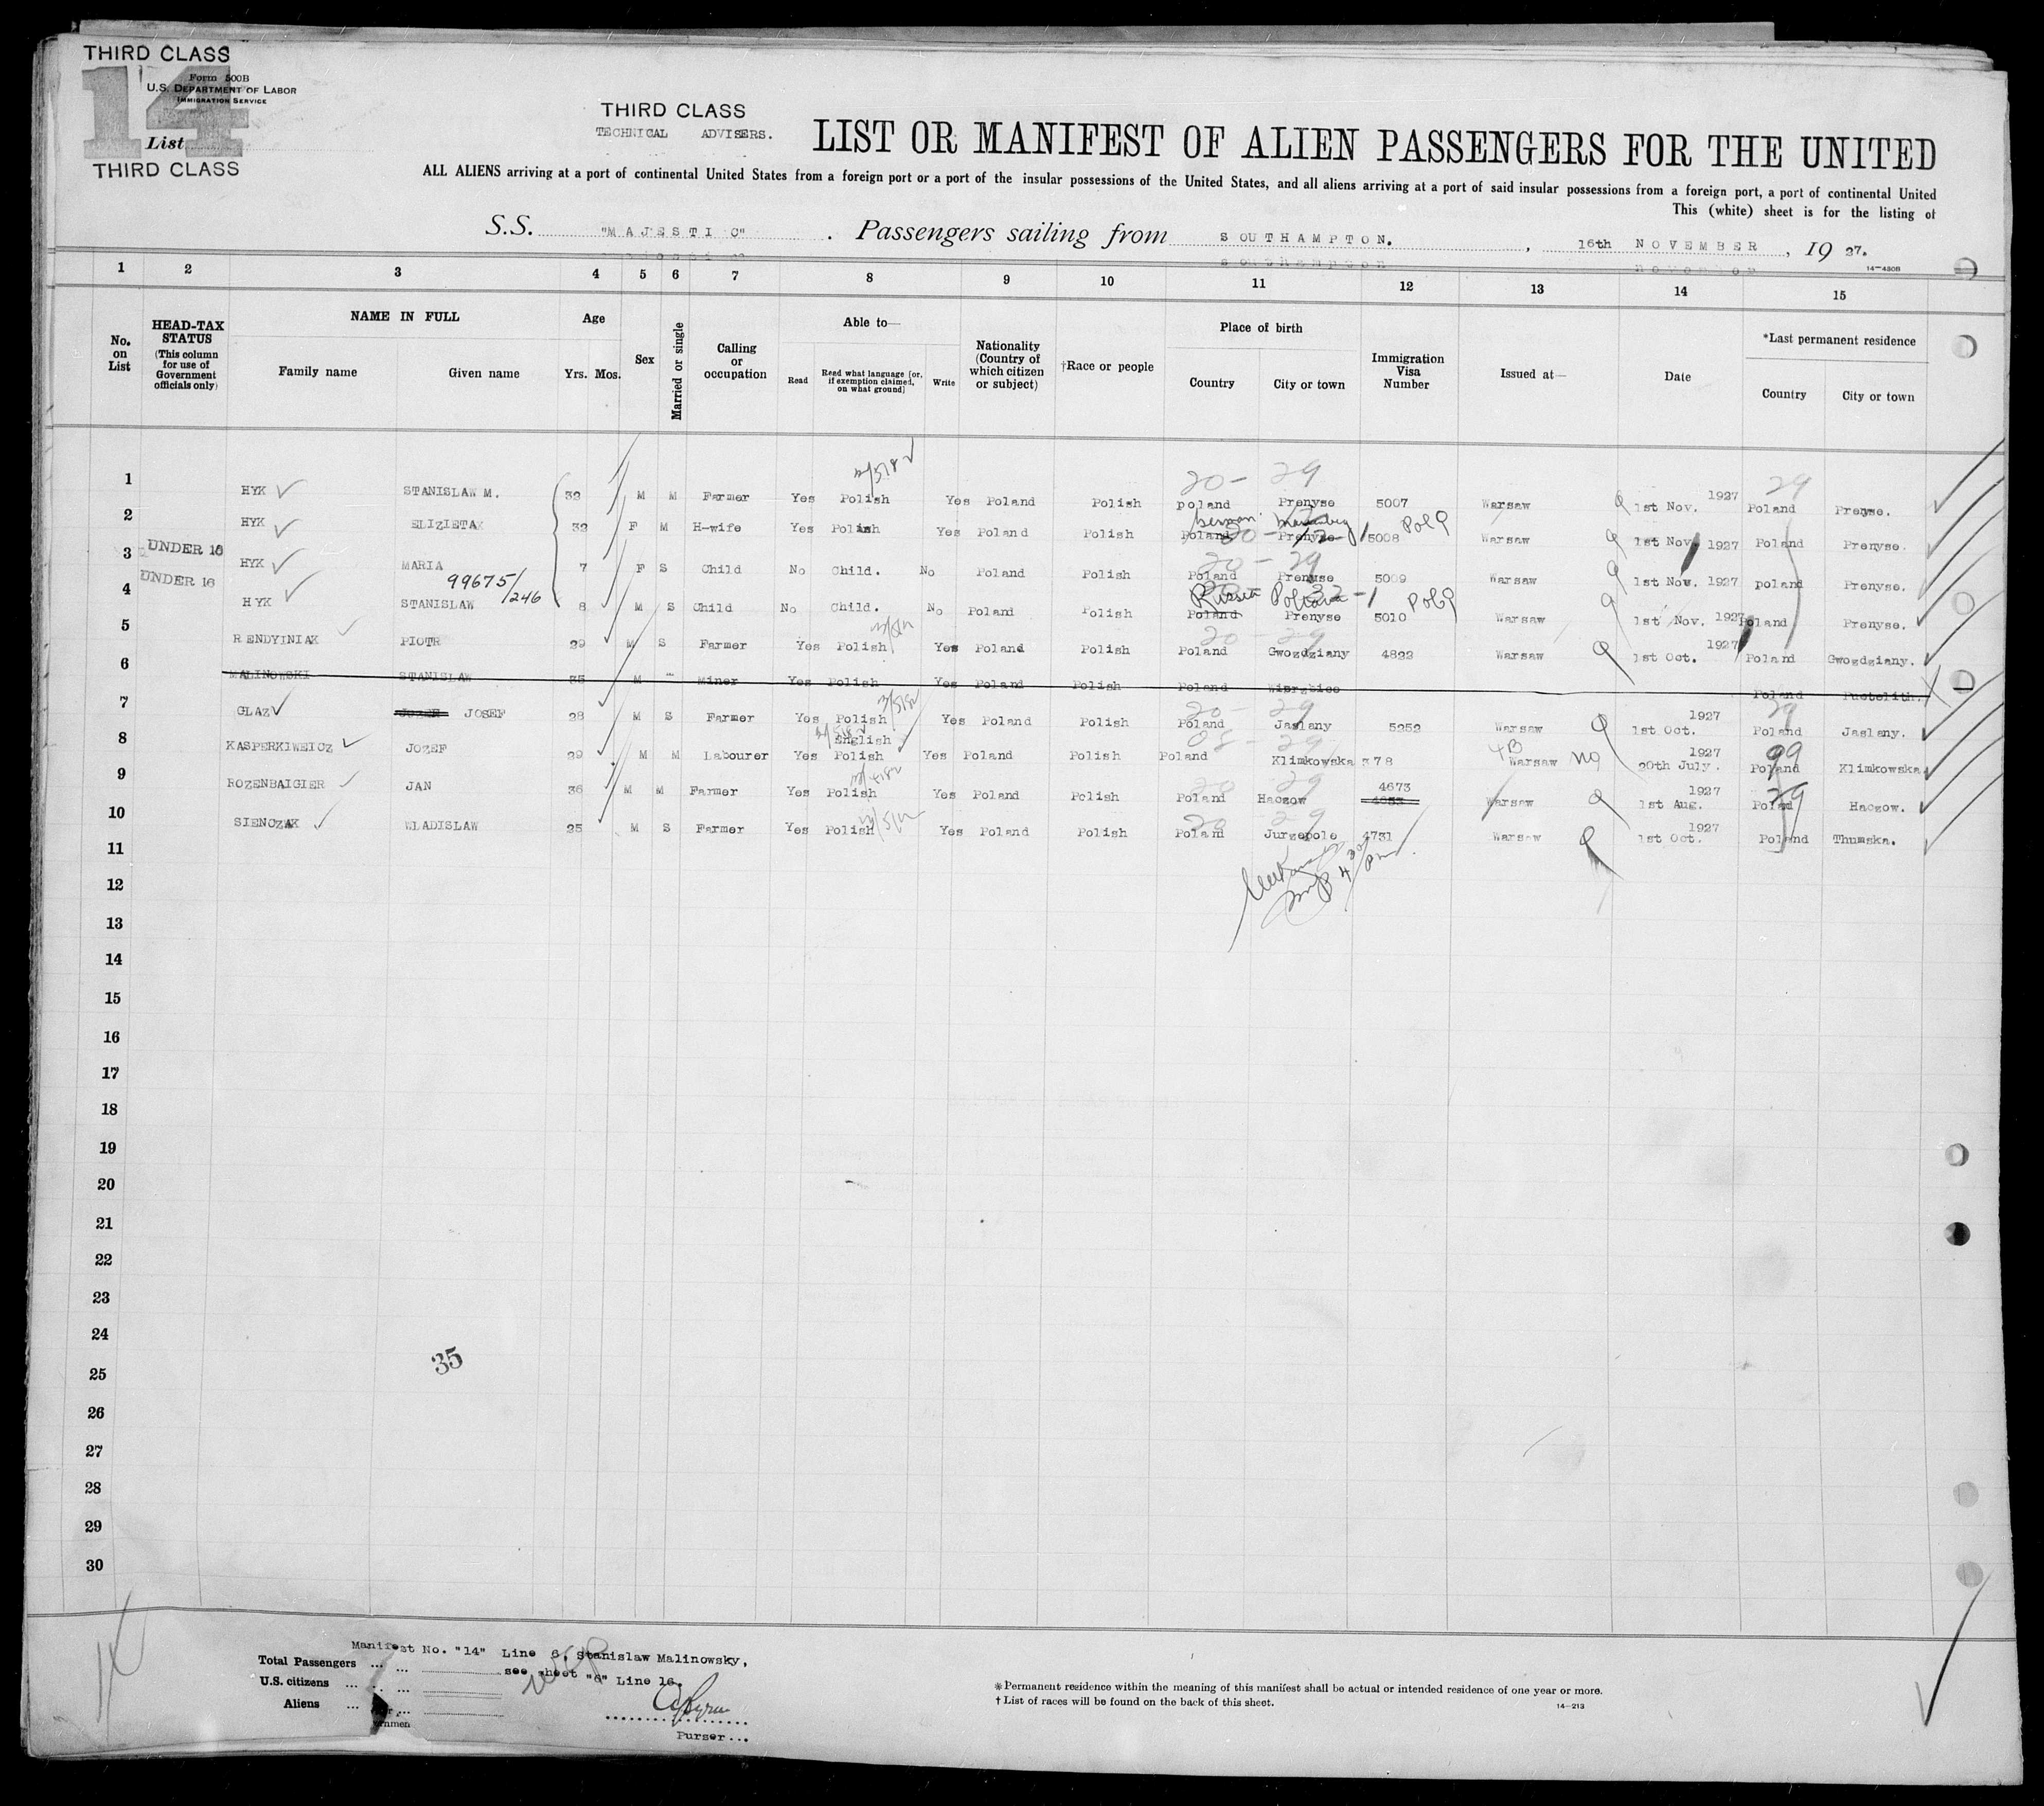 THIRD CLASS
14
Form 500B
U.S. DEPARTMENT OF LABOR
IMMIGRATION SERVICE
List
THIRD CLASS
THIRD CLASS
TECHNICAL ADVISERS.
LIST OR MANIFEST OF ALIEN PASSENGERS FOR THE UNITED
ALL ALIENS arriving at a port of continental United States from a foreign port or a port of the insular possessions of the United States, and all aliens arriving at a port of said insular possessions from a foreign port, a port of continental United
This (white) sheet is for the listing of
S.S. "MAJESTIC". Passengers sailing from SOUTHAMPTON., 16th NOVEMBER, 19 27.
14-430B
1 2 3 4 5 6 7 8 9 10 11 12 13 14 15
No. on List
HEAD-TAX STATUS (This column for use of Government officials only)
NAME IN FULL Family name Given name
Age Yrs. Mos.
Sex
Married or single
Calling or occupation
Able to— Read Read what language [or, if exemption claimed, on what ground] Write
Nationality (Country of which citizen or subject)
†Race or people
Place of birth Country City or town
Immigration Visa Number
Issued at—
Date
*Last permanent residence Country City or town
20 - 29 29
1 HYK STANISLAW M. 32 M M Farmer Yes Polish Yes Poland Polish poland Prenyse 5007 Warsaw 1st Nov. 1927 Poland Prenyse.
German
2 HYK ELIZIETA 32 F M H-wife Yes Polish Yes Poland Polish Poland Prenyse 5008 Warsaw 1st Nov. 1927 Poland Prenyse.
20 - 29
3 UNDER 16 HYK MARIA 7 F S Child No Child. No Poland Polish Poland Prenyse 5009 Warsaw 1st Nov. 1927 poland Prenyse.
99675/246
Russia Poltava
4 UNDER 16 HYK STANISLAW 8 M S Child No Child. No Poland Polish Poland Prenyse 5010 Warsaw 1st Nov. 1927 Poland Prenyse.
20 - 29
5 RENDYINIAK PIOTR 29 M S Farmer Yes Polish Yes Poland Polish Poland Gwozdziany 4822 Warsaw 1st Oct. 1927 Poland Gwozdziany.
6 MALINOWSKI STANISLAW 35 M Miner Yes Polish Yes Poland Polish Poland Wierzbice Poland
20 - 29 29
7 GLAZ JOSEF 28 M S Farmer Yes Polish Yes Poland Polish Poland Jaslany 5252 Warsaw 1st Oct. 1927 Poland Jaslany.
English
8 KASPERKIWEICZ JOZEF 29 M M Labourer Yes Polish Yes Poland Polish Poland Klimkowska 378 Warsaw 20th July. 1927 Poland Klimkowska
4673
9 ROZENBAIGIER JAN 36 M M Farmer Yes Polish Yes Poland Polish Poland Haczow Warsaw 1st Aug. 1927 Poland Haczow.
20 - 29
10 SIENCZAK WLADISLAW 25 M S Farmer Yes Polish Yes Poland Polish Poland Jurzepole 4731 Warsaw 1st Oct. 1927 Poland Thumska.
11
12
13
14
15
16
17
18
19
20
21
22
23
24
35
25
26
27
28
29
30
Manifest No. "14" Line 6, Stanislaw Malinowsky,
Total Passengers
see sheet "6" Line 16.
U.S. citizens
Aliens
Purser...
*Permanent residence within the meaning of this manifest shall be actual or intended residence of one year or more.
† List of races will be found on the back of this sheet.
14-213